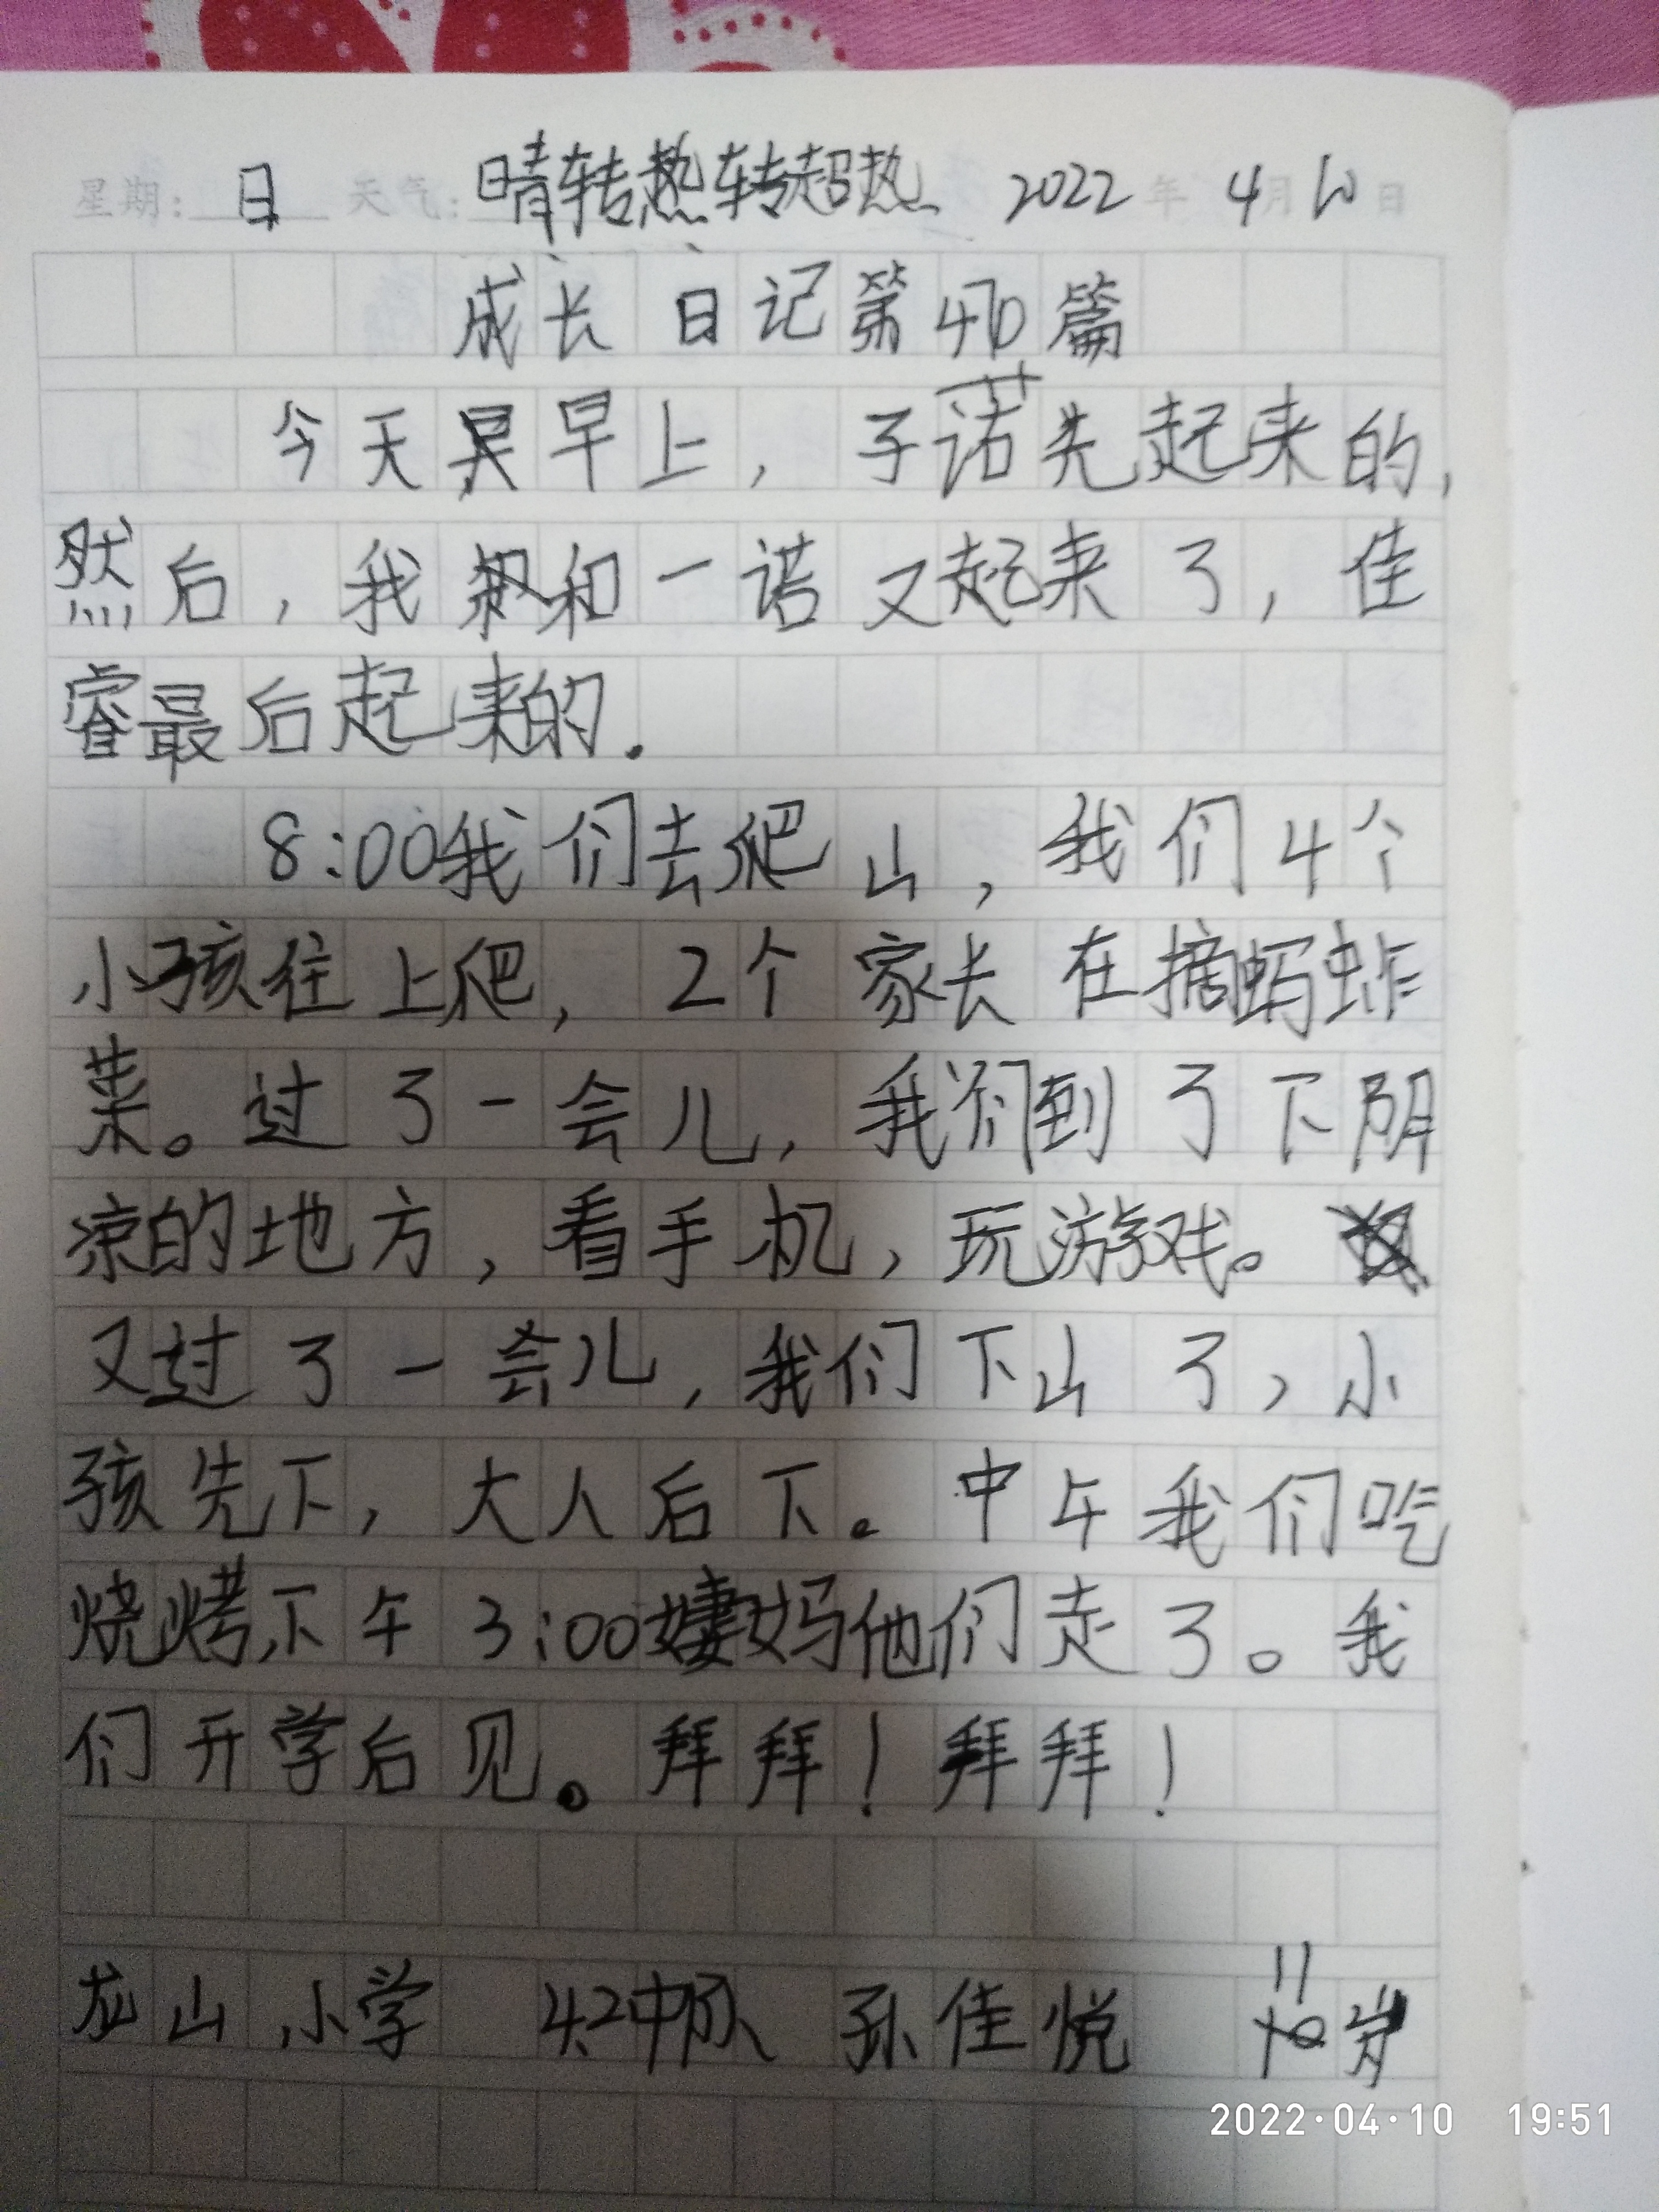 星期: 日 天气: 晴转热转超热 2022 年 4 月 10 日
成长日记第40篇
今天早上，子诺先起来的，
然后，我和一诺又起来了，佳
睿最后起来的.
8:00我们去爬山，我们4个
小孩往上爬，2个家长在摘蚂蚱
菜。过了一会儿，我们到了下阴
凉的地方，看手机，玩游戏。
又过了一会儿，我们下山了，小
孩先下，大人后下。中午我们吃
烧烤,下午3:00妈他们走了。我
们开学后见。拜拜！拜拜！
龙山小学 4.2中队 孙佳悦 11岁
2022·04·10 19:51